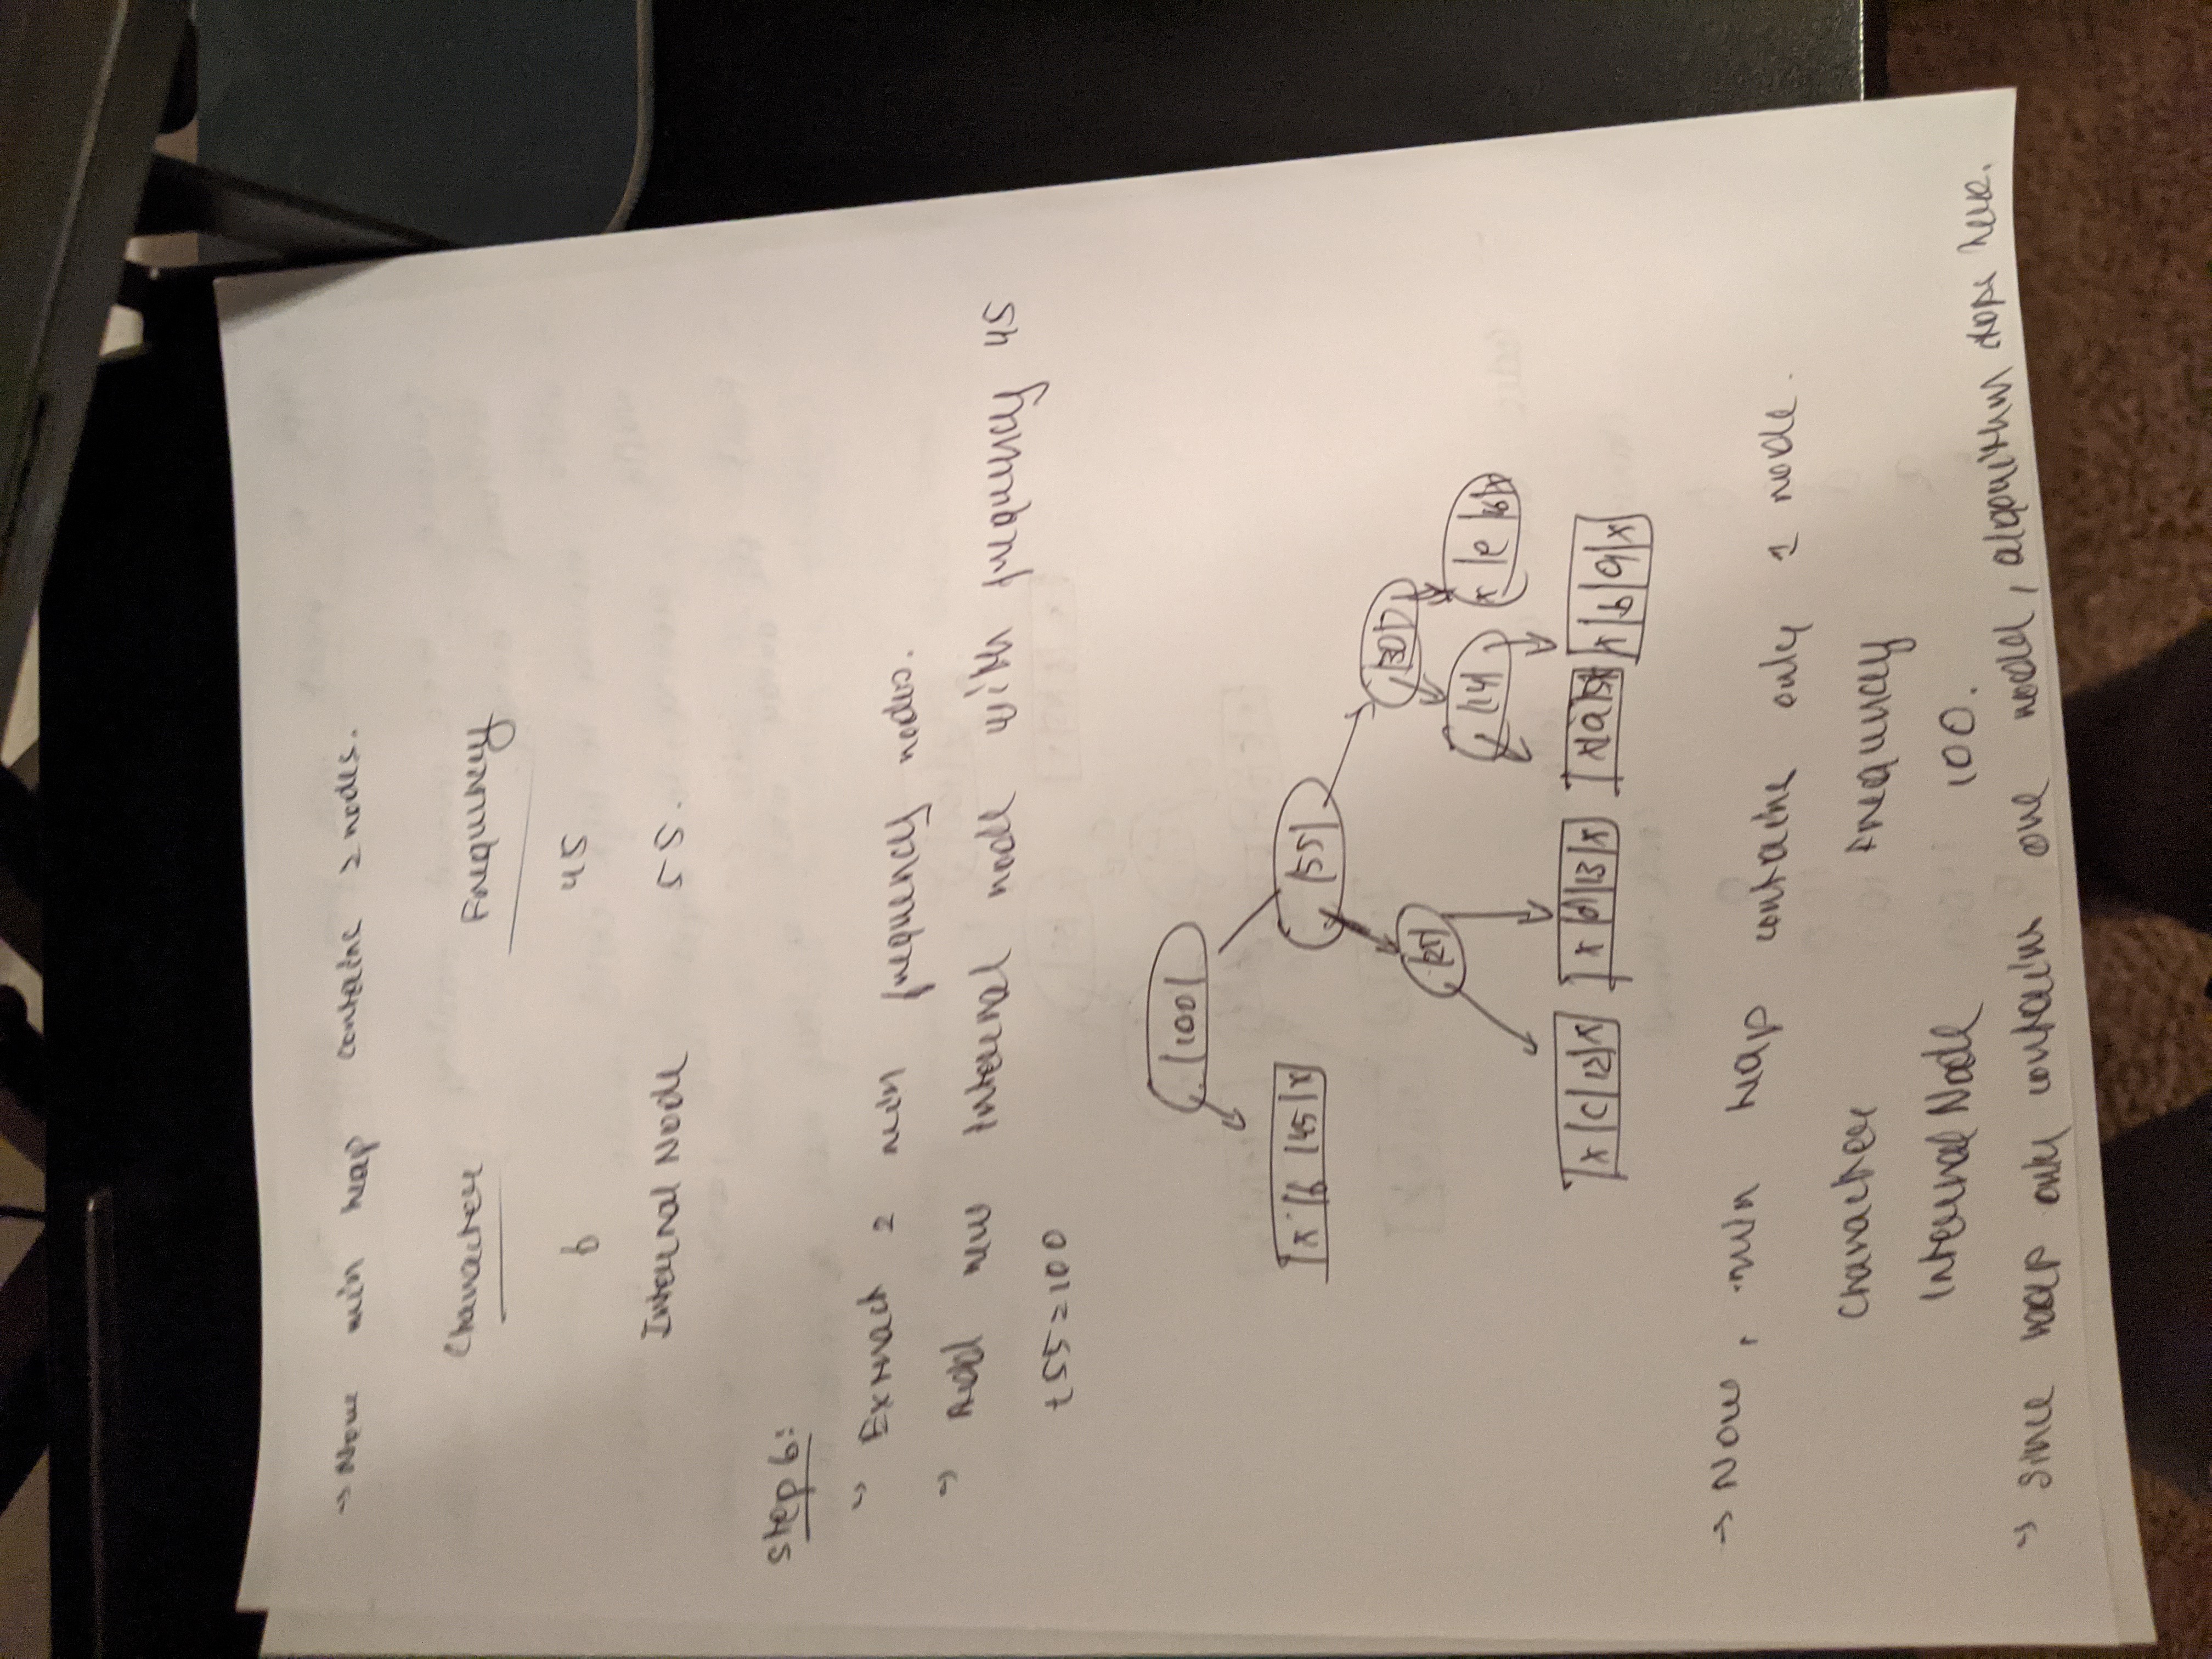 → Now min heap contains 2 nodes.
Character Frequency
b 45
Internal Node 55.
Step 6:
→ Extract 2 min frequency nodes.
→ Add new Internal node with frequency 45
+55=100
100
x b 45 x
55
25
30
14
x e
x c 12 x
x d 13 x
a 5
x b 9 x
→ Now, min heap contains only 1 node.
Character Frequency
Internal Node 100.
→ Since heap only contains one node, algorithm stops here.